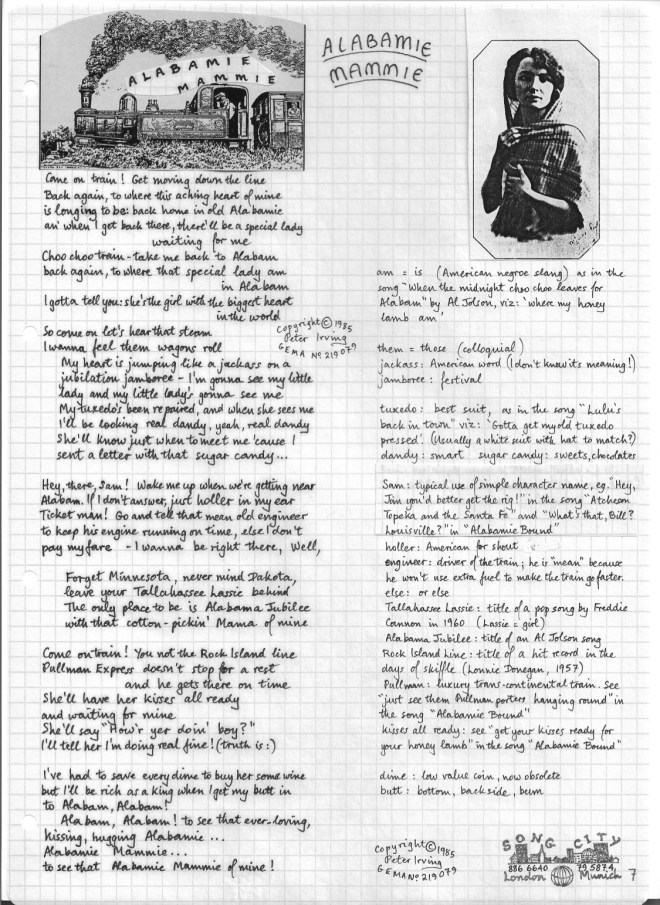 ALABAMIE
MAMMIE
ALABAMIE
MAMMIE
Come on train! Get moving down the line
Back again, to where this aching heart of mine
is longing to be: back home in old Alabamie
an' when I get back there, there'll be a special lady
waiting for me
Choo choo train - take me back to Alabam
back again, to where that special lady am
in Alabam
I gotta tell you: she's the girl with the biggest heart
in the world
So come on let's hear that steam
I wanna feel them wagons roll
My heart is jumping like a jackass on a
jubilation jamboree - I'm gonna see my little
lady and my little lady's gonna see me
My tuxedo's been repaired, and when she sees me
I'll be looking real dandy, yeah, real dandy
She'll know just when to meet me 'cause I
sent a letter with that sugar candy...
Copyright © 1985
Peter Irving
GEMA No 219079
Hey, there, Sam! Wake me up when we're getting near
Alabam. If I don't answer, just holler in my ear
Ticket man! Go and tell that mean old engineer
to keep his engine running on time, else I don't
pay my fare - I wanna be right there, Well,
Forget Minnesota, never mind Dakota,
leave your Tallahassee Lassie behind
The only place to be is Alabama Jubilee
with that cotton-pickin' Mama of mine
Come on train! You not the Rock Island line
Pullman Express doesn't stop for a rest
and he gets there on time
She'll have her kisses all ready
and waiting for mine
She'll say "How'r yer doin' boy?"
I'll tell her I'm doing real fine! (truth is:)
I've had to save every dime to buy her some wine
but I'll be rich as a king when I get my butt in
to Alabam, Alabam!
Alabam, Alabam! to see that ever-loving,
kissing, hugging Alabamie...
Alabamie Mammie...
to see that Alabamie Mammie of mine!
am = is (American negroe slang) as in the
song "When the midnight choo choo leaves for
Alabam" by Al Jolson, viz: 'where my honey
lamb am'
them = those (colloquial)
jackass: American word (I don't know its meaning!)
jamboree: festival
tuxedo: best suit, as in the song "Lulu's
back in town" viz: 'Gotta get my old tuxedo
pressed'. (Usually a white suit with hat to match?)
dandy: smart sugar candy: sweets, chocolates
Sam: typical use of simple character name, eg. "Hey,
Jim you'd better get the rig!" in the song "Atcheson
Topeka and the Santa Fe" and "What's that, Bill?
Louisville?" in "Alabamie Bound"
holler: American for shout
engineer: driver of the train; he is "mean" because
he won't use extra fuel to make the train go faster.
else: or else
Tallahassee Lassie: title of a pop song by Freddie
Cannon in 1960 (Lassie = girl)
Alabama Jubilee: title of an Al Jolson song
Rock Island Line: title of a hit record in the
days of skiffle (Lonnie Donegan, 1957)
Pullman: luxury trans-continental train. See
"just see them Pullman porters hanging round" in
the song "Alabamie Bound"
Kisses all ready: see "get your kisses ready for
your honey lamb" in the song "Alabamie Bound"
dime: low value coin, now obsolete
butt: bottom, backside, bum
Copyright © 1985
Peter Irving
GEMA No 219079
SONG CITY
886 6640 79 5874
London Munich
7